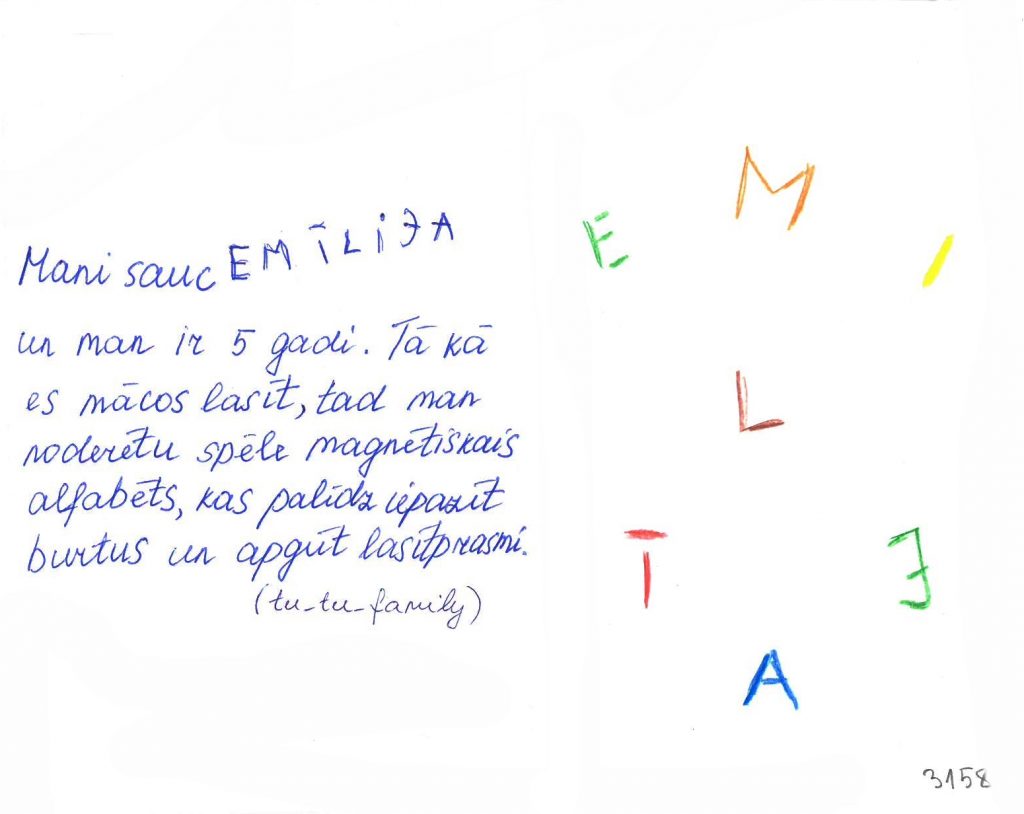 Mani sauc EMĪLIJA
un man ir 5 gadi. Tā kā
es mācos lasīt, tad man
noderētu spēle magnētiskais
alfabēts, kas palīdz iepazīt
burtus un apgūt lasītprasmi.
(tu_tu_family)
M
E
I
L
Ī
J
A
3158